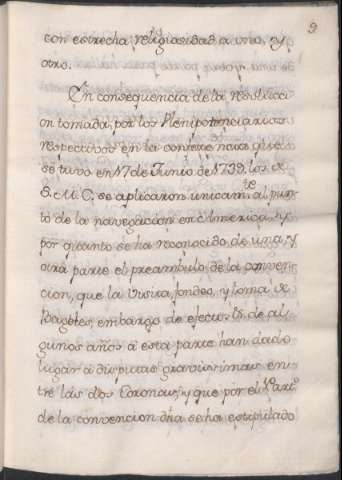 9
con estrecha religiosidad a uno, y
otro.
En consequencia de la resoluci-
on tomada, por los Plenipotenciarios
respectivos en la conferencia que
se tuvo en 17 de Junio de 1739. los de
S. M. C. se aplicaron unicam.te al pun-
to de la navegacion en America, y
por quanto se ha reconocido de una, y
otra parte el preambulo de la conven-
cion, que la Visita, fondeo, y toma de
Bageles, embargo de efectos &. de al-
gunos años a esta parte han dado
lugar a disputas gravisimas en-
tre las dos Coronas; y que por el 1.º art.º
de la convencion dha se ha estipulado